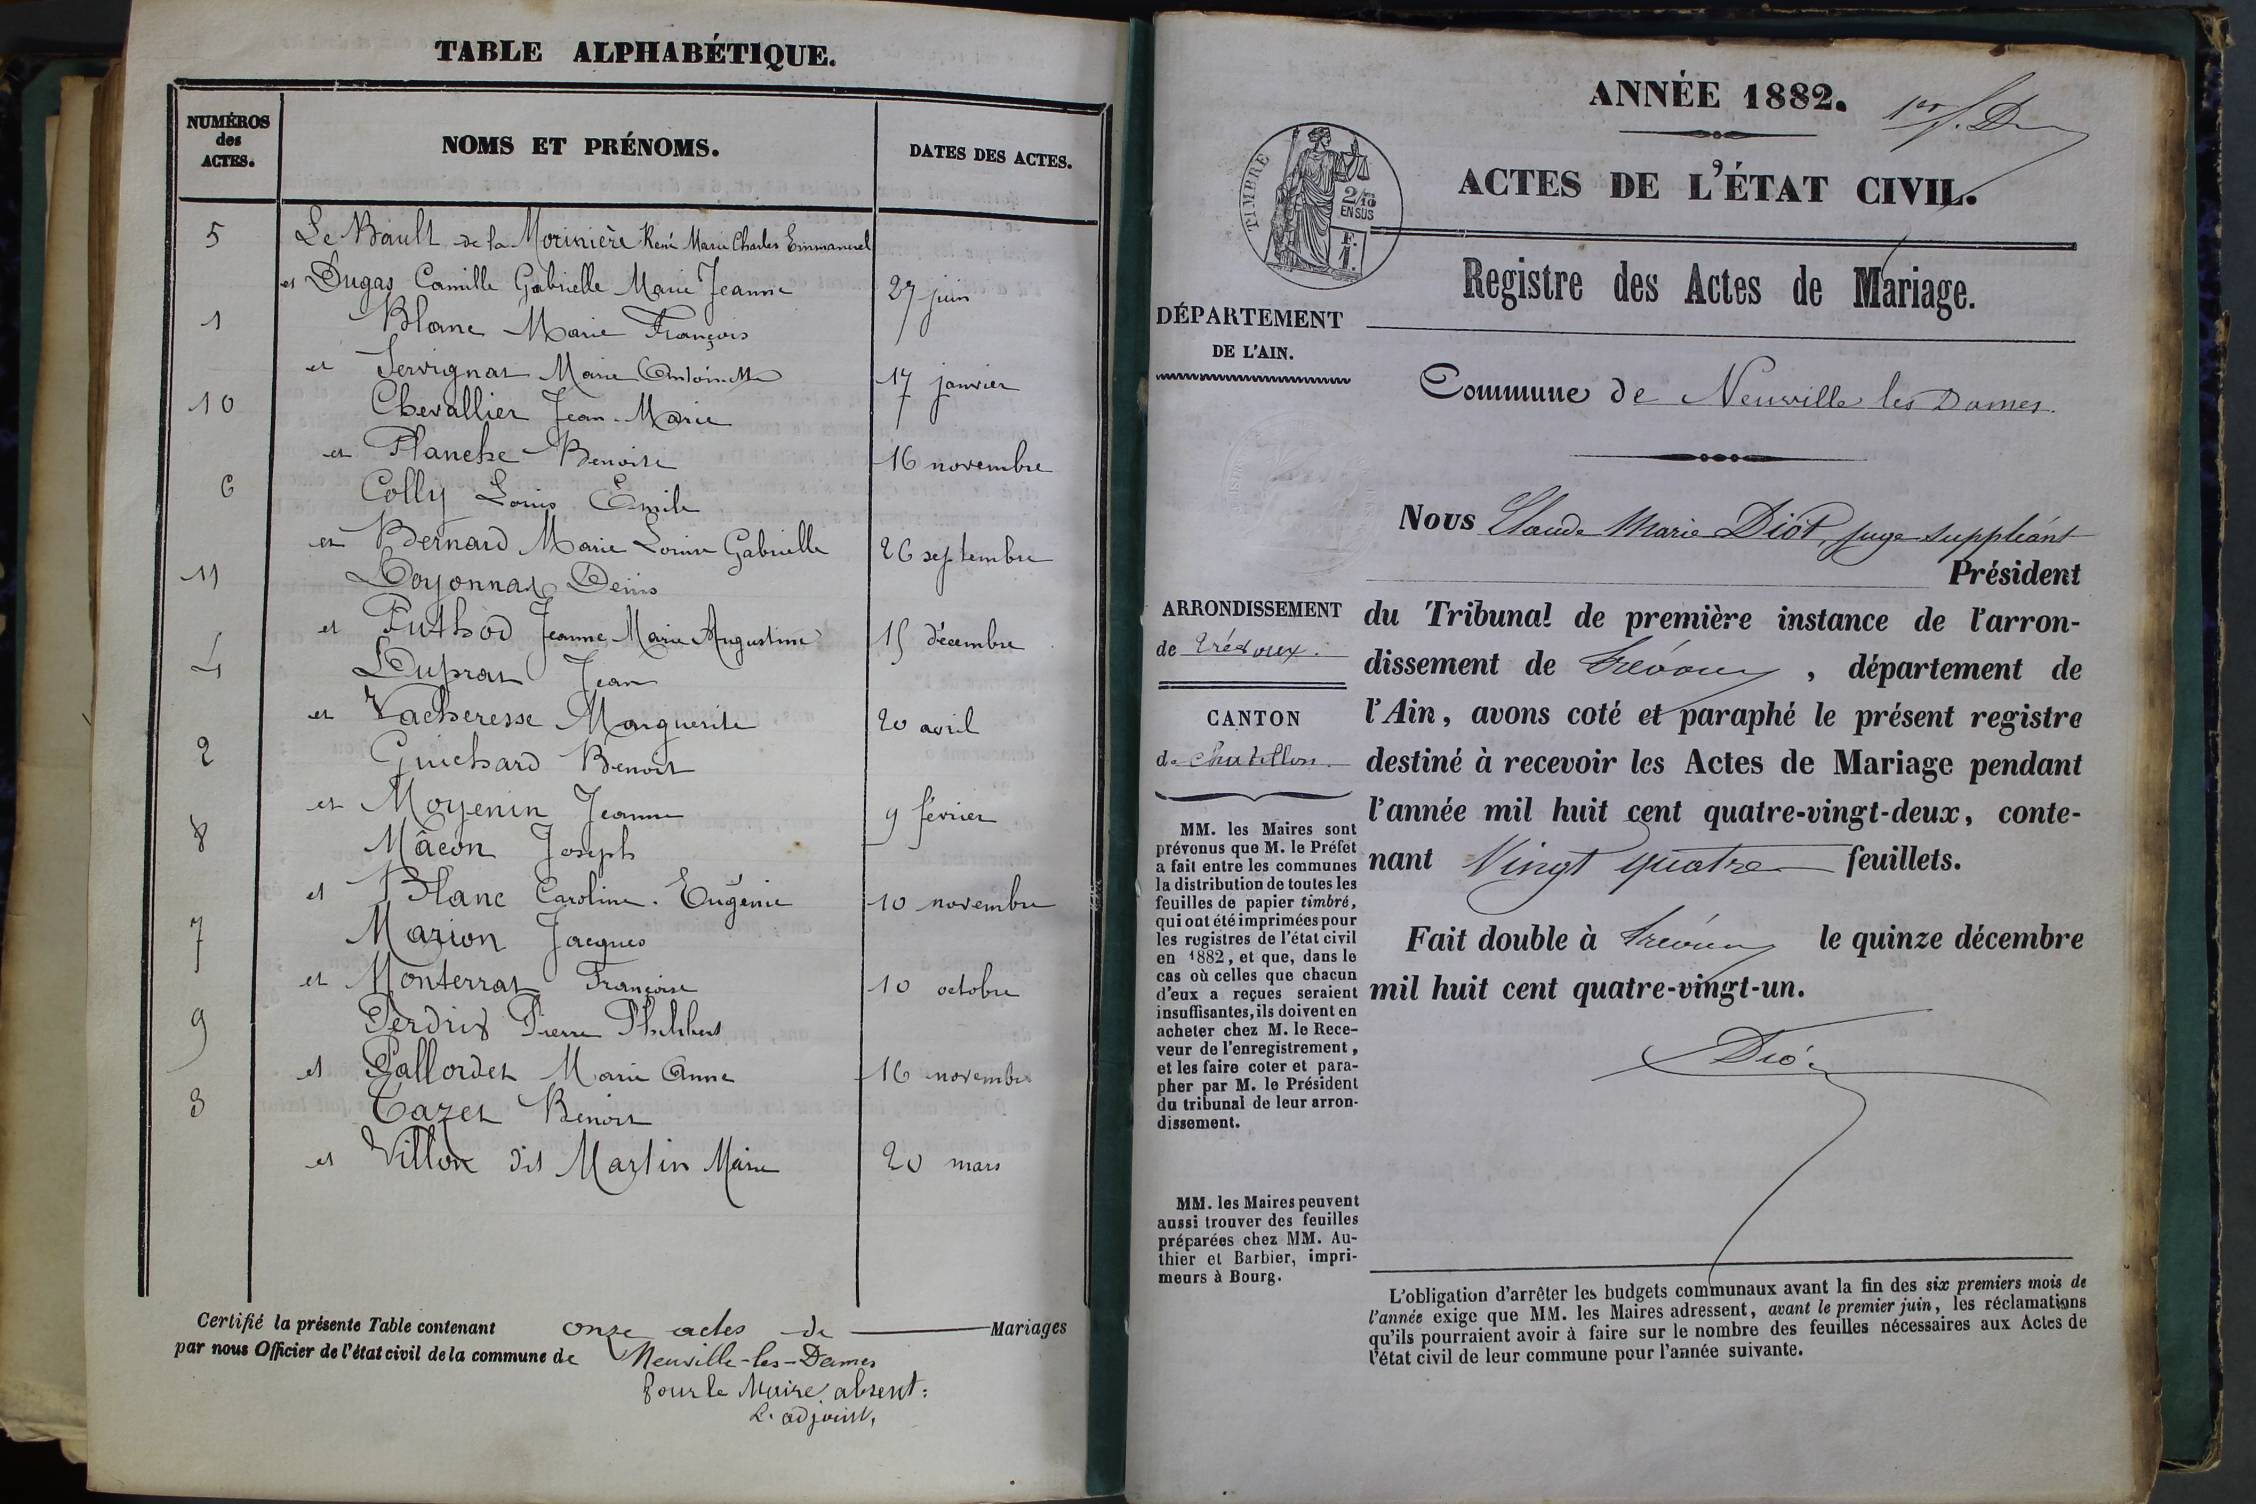 TABLE ALPHABÉTIQUE.
NUMÉROS
des
ACTES.
NOMS ET PRÉNOMS.
DATES DES ACTES.
5 Le Bault de la Morinière René Marie Charles Emmanuel
et Dugas Camille Gabrielle Marie Jeanne 27 juin
1 Blanc Marie François
et Servignat Marie Antoinette 17 janvier
10 Chevallier Jean-Marie
et Planche Benoite 16 novembre
6 Colly Louis Emile
et Bernard Marie Louise Gabrielle 26 septembre
11 Doyonnas Denis
et Puthod Jeanne Marie Augustine 15 décembre
4 Duprat Jean
et Vacheresse Marguerite 20 avril
2 Guichard Benoit
et Moyenin Jeanne 9 février
8 Mâcon Joseph
et Blanc Caroline Eugénie 10 novembre
7 Marion Jacques
et Monterrat Françoise 10 octobre
9 Perdrix Pierre Philibert
et Gallordet Marie Anne 16 novembre
3 Cazet Benoit
et Villon dit Martin Marie 20 mars
Certifié la présente Table contenant onze actes de Mariages
par nous Officier de l'état civil de la commune de Neuville-les-Dames
Pour le Maire absent:
L'adjoint,
ANNÉE 1882.
1er f. D
ACTES DE L'ÉTAT CIVIL.
TIMBRE
2/10
EN SUS
F.
1.
Registre des Actes de Mariage.
DÉPARTEMENT
DE L'AIN.
Commune de Neuville les Dames.
Nous Claude Marie Diot, juge suppléant
Président
du Tribunal de première instance de l'arron-
dissement de Trévoux, département de
l'Ain, avons coté et paraphé le présent registre
destiné à recevoir les Actes de Mariage pendant
l'année mil huit cent quatre-vingt-deux, conte-
nant Vingt quatre feuillets.
Fait double à Trévoux le quinze décembre
mil huit cent quatre-vingt-un.
Diot
ARRONDISSEMENT
de Trévoux.
CANTON
de Chatillon
MM. les Maires sont
prévenus que M. le Préfet
a fait entre les communes
la distribution de toutes les
feuilles de papier timbré,
qui ont été imprimées pour
les registres de l'état civil
en 1882, et que, dans le
cas où celles que chacun
d'eux a reçues seraient
insuffisantes, ils doivent en
acheter chez M. le Rece-
veur de l'enregistrement,
et les faire coter et para-
pher par M. le Président
du tribunal de leur arron-
dissement.
MM. les Maires peuvent
aussi trouver des feuilles
préparées chez MM. Au-
thier et Barbier, impri-
meurs à Bourg.
L'obligation d'arrêter les budgets communaux avant la fin des six premiers mois de
l'année exige que MM. les Maires adressent, avant le premier juin, les réclamations
qu'ils pourraient avoir à faire sur le nombre des feuilles nécessaires aux Actes de
l'état civil de leur commune pour l'année suivante.